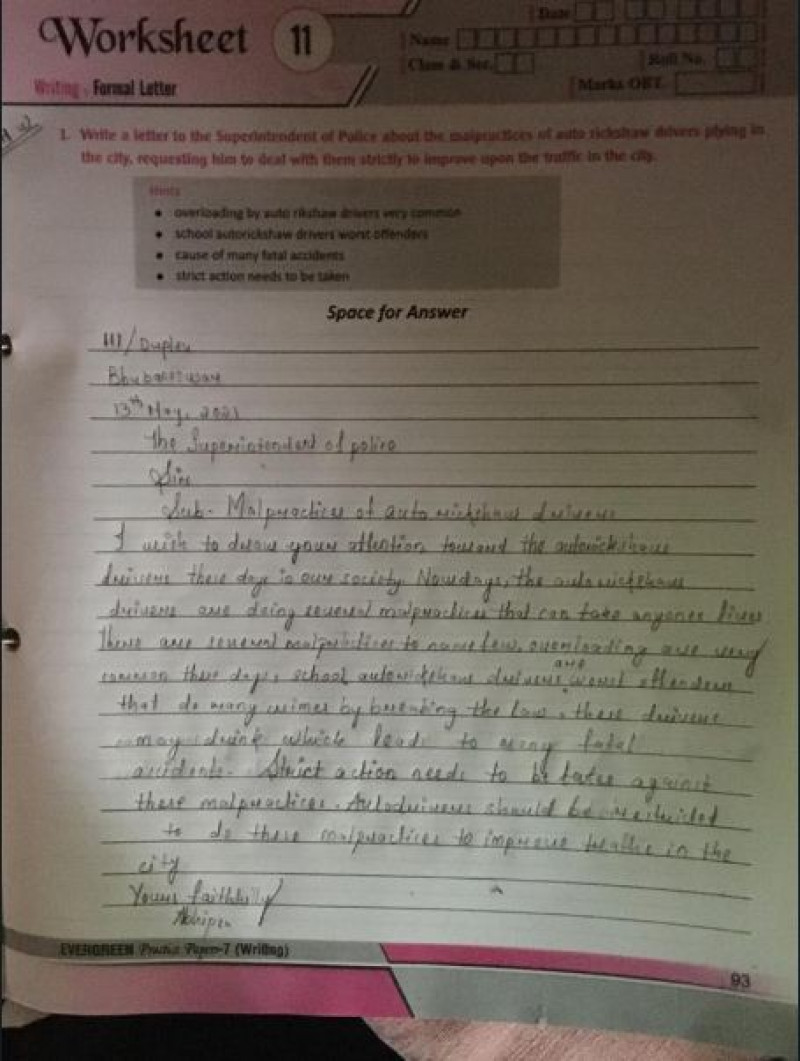 Worksheet 11
Date
Name
Class & Sec.
Roll No.
Writing : Formal Letter
Marks OBT.
1. Write a letter to the Superintendent of Police about the malpractices of auto rickshaw drivers plying in
the city, requesting him to deal with them strictly to improve upon the traffic in the city.
Hints
• overloading by auto rikshaw drivers very common
• school autorickshaw drivers worst offenders
• cause of many fatal accidents
• strict action needs to be taken
Space for Answer
111/Duplex
Bhubaneswar
13th May, 2021
The Superintendent of police
Sir
Sub- Malpractices of auto rickshaw drivers
I wish to draw your attention toward the autorickshaw
drivers these days in our society. Nowdays, the auto rickshaw
drivers are doing several malpractices that can take anyones lives
There are several malpractices to name few, overloading are very
common these days, school autorickshaw drivers are worst offenders
that do many crimes by breaking the law, these drivers
may drink which leads to many fatal
accidents. Strict action needs to be taken against
these malpractices. Autodrivers should be
to do these malpractices to improve traffic in the
city
Yours faithfully
EVERGREEN Practice Papers-7 (Writing)
93